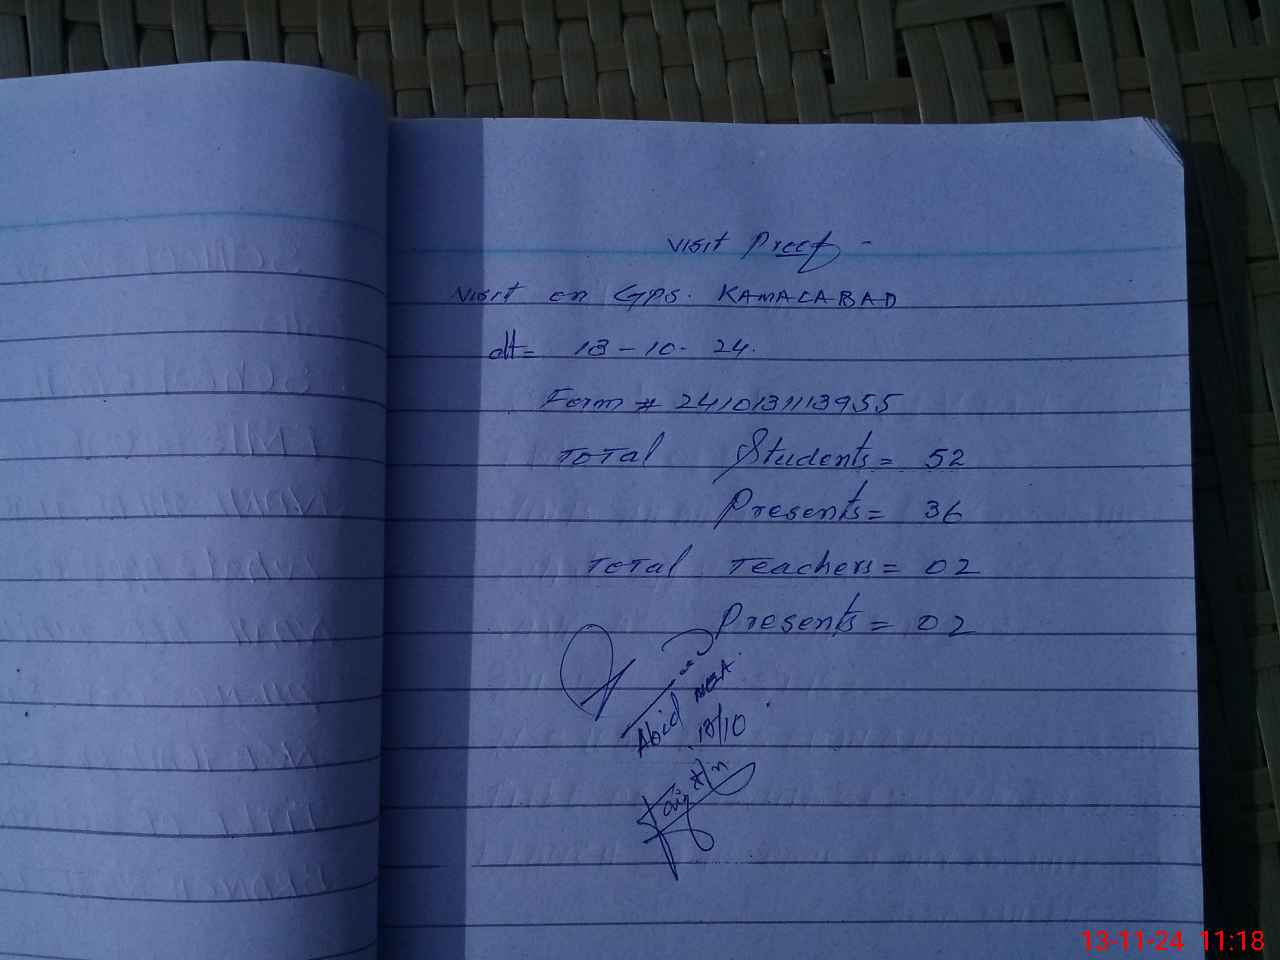 Visit Proof -
Visit on GPS. KAMALABAD
dt= 13-10-24.
Form # 2410131113955
Total Students = 52
Presents = 36
Total Teachers = 02
Presents = 02
Abid MEA
13/10
13-11-24 11:18